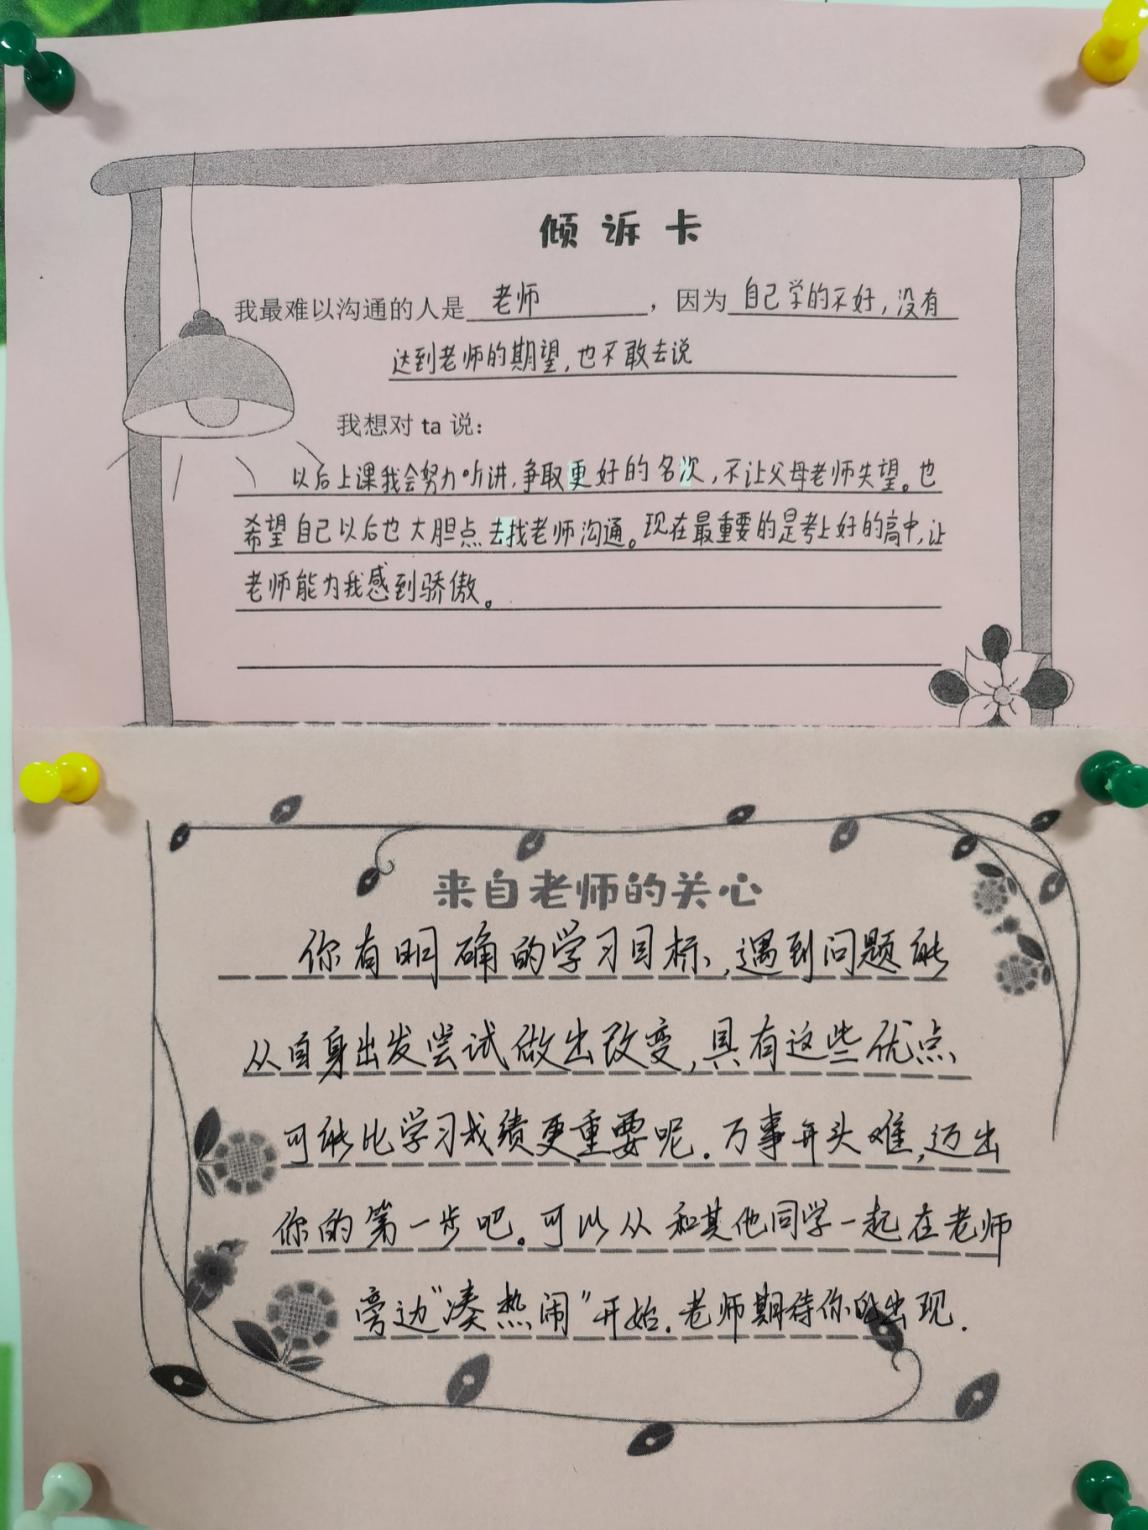 倾诉卡
我最难以沟通的人是 老师 ，因为 自己学的不好，没有
达到老师的期望，也不敢去说
我想对 ta 说：
以后上课我会努力听讲，争取更好的名次，不让父母老师失望。也
希望自己以后也大胆点去找老师沟通。现在最重要的是考上好的高中，让
老师能为我感到骄傲。
来自老师的关心
你有明确的学习目标，遇到问题能
从自身出发尝试做出改变，具有这些优点
可能比学习成绩更重要呢．万事开头难，迈出
你的第一步吧。可以从和其他同学一起在老师
旁边“凑热闹”开始．老师期待你的出现．